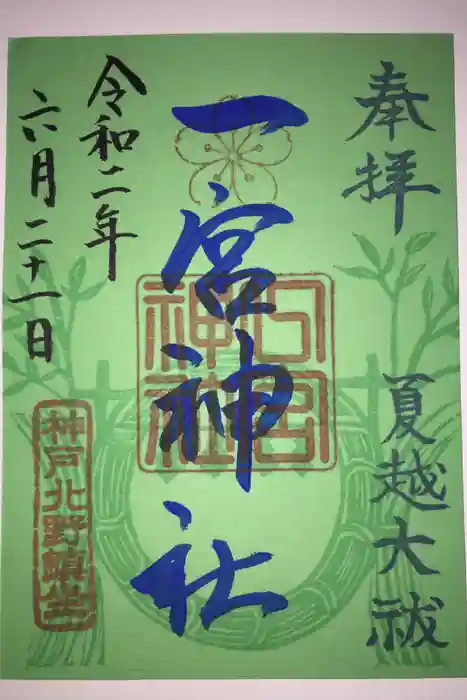 奉拝
夏越大祓
一宮神社
一宮神社
令和二年
六月二十一日
神戸北野鎮坐